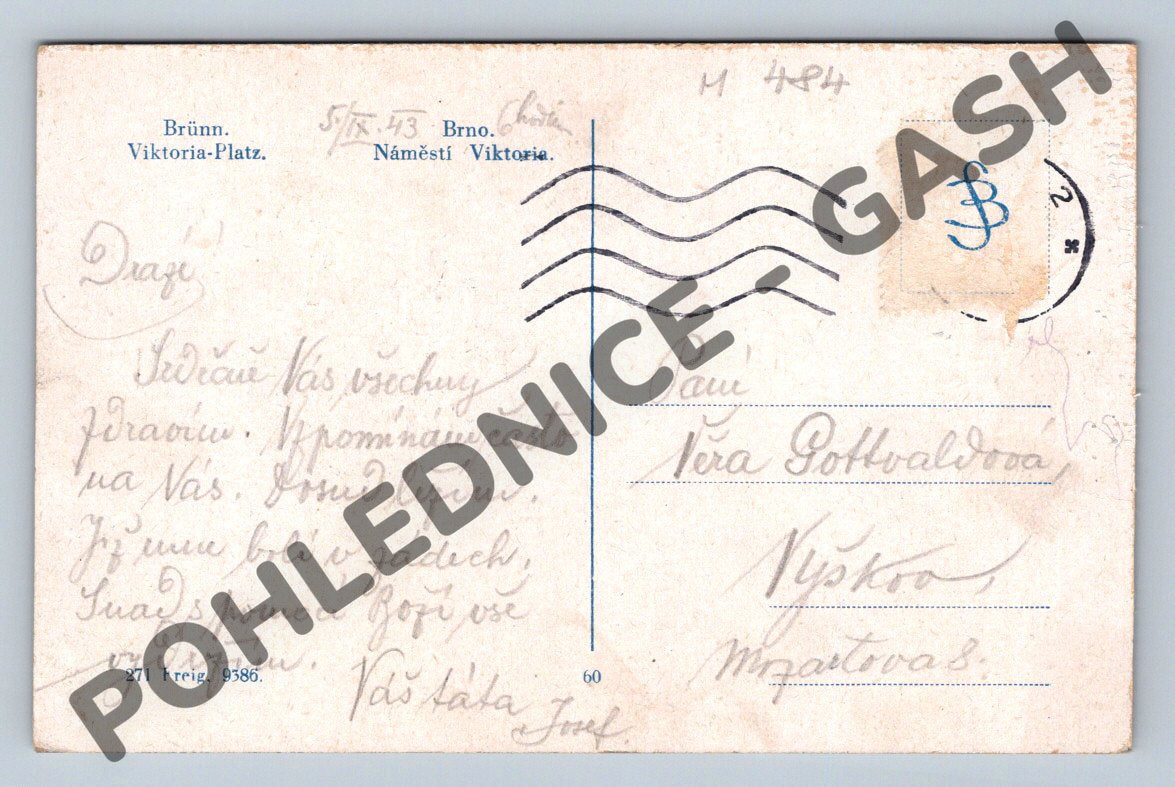 M 484
Brünn.
Viktoria-Platz.
5/IX. 43 6 hodin
Brno.
Náměstí Viktoria.
2
Drazí!
Srdečně Vás všechny
zdravím. Vzpomínám často
na Vás. Dosud ležím.
Již mne bolí v zádech.
Snad s pomocí Boží vše
vydržím.
Váš táta
Josef.
Paní
Věra Gottvaldová,
Vyškov,
Mozartova 8.
271 Freig. 9386.
60
POHLEDNICE - GASH